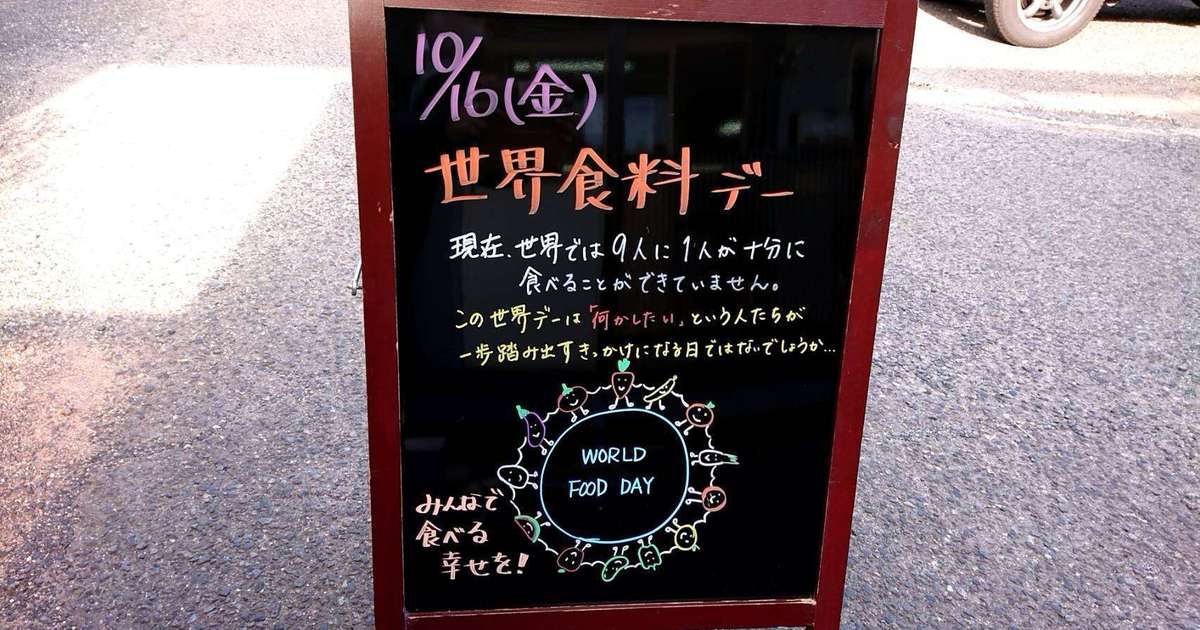 10/16(金)
世界食料デー
現在、世界では9人に1人が十分に
食べることができていません。
この世界デーは「何かしたい」という人たちが
一歩踏み出すきっかけになる日ではないでしょうか...
WORLD
FOOD DAY
みんなで
食べる
幸せを!